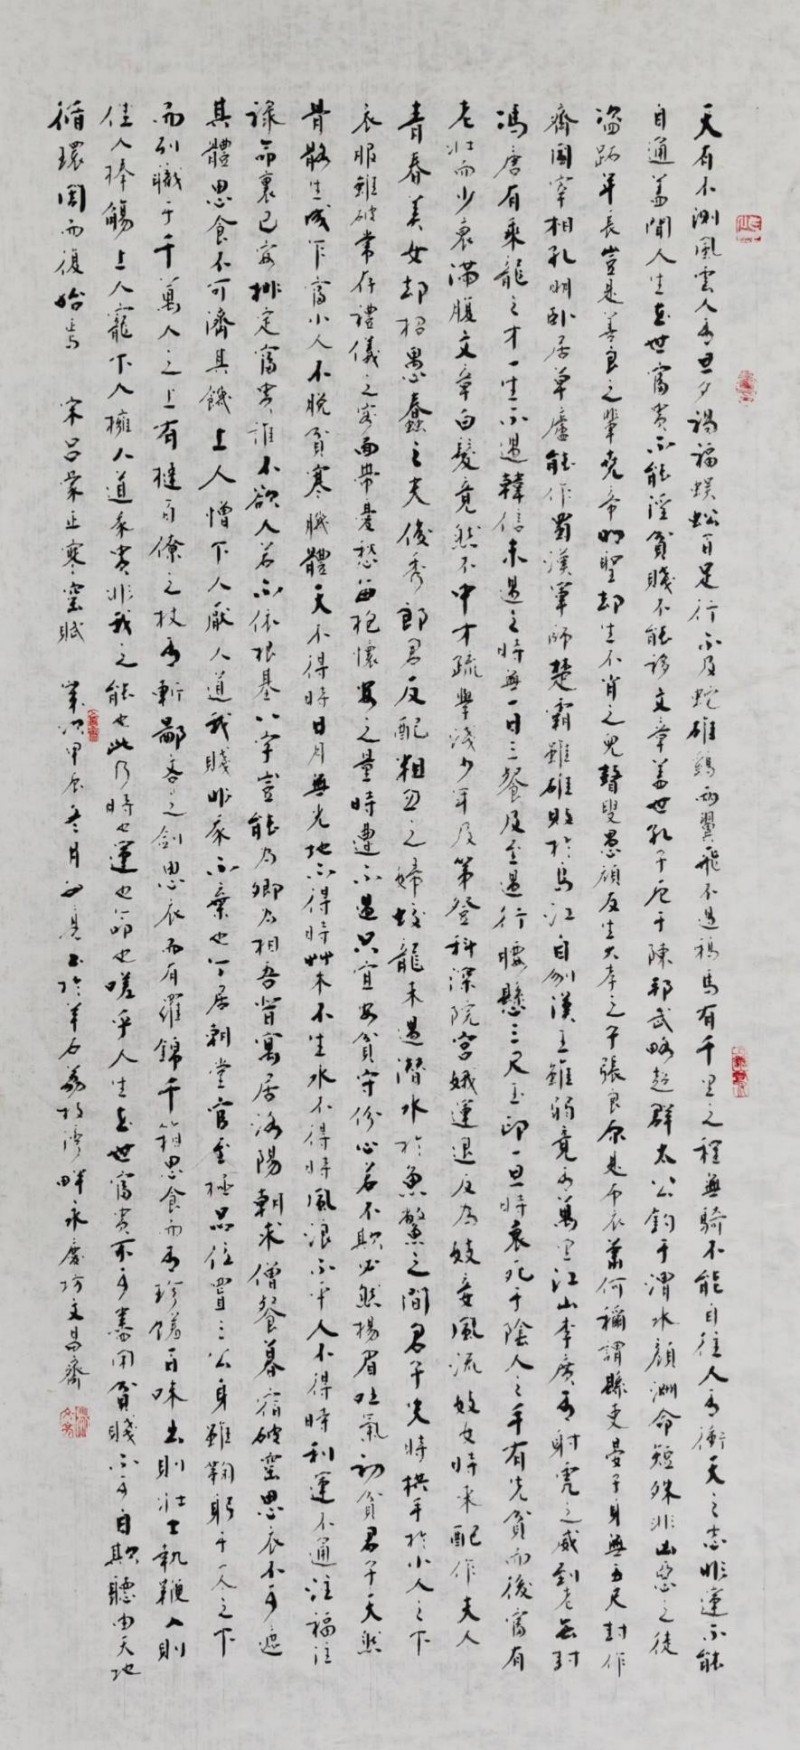 天有不測風雲人有旦夕禍福蜈蚣百足行不及蛇雄鷄兩翼飛不過鴉馬有千里之程無騎不能自往人有衝天之志非運不能
自通蓋聞人生在世富貴不能淫貧賤不能移文章蓋世孔子厄于陳邦武略超群太公釣于渭水顏淵命短殊非凶惡之徒
盜跖年長豈是善良之輩堯帝明聖却生不肖之兒瞽叟愚頑反生大孝之子張良原是布衣蕭何稱謂縣吏晏子身無五尺封作
齊國宰相孔明卧居草廬能作蜀漢軍師楚霸雖雄敗於烏江自刎漢王雖弱竟有萬里江山李廣有射虎之威到老無封
馮唐有乘龍之才一生不遇韓信未遇之時無一日三餐及至遇行腰懸三尺玉印一旦時衰死于陰人之手有先貧而後富有
老壯而少衰滿腹文章白髮竟然不中才疏學淺少年及第登科深院宮娥運退反為妓妾風流妓女時來配作夫人
青春美女却招愚蠢之夫俊秀郎君反配粗丑之婦蛟龍未遇潛水於魚鱉之間君子失時拱手於小人之下
衣服雖破常存禮儀之容面帶憂愁每抱懷安之量時遭不遇只宜安貧守份心若不欺必然揚眉吐氣初貧君子天然
骨骼生成乍富小人不脫貧寒肌體天不得時日月無光地不得時草木不生水不得時風浪不平人不得時利運不通注福注
祿命裏已安排定富貴誰不欲人若不依根基八字豈能為卿為相吾昔寓居洛陽朝求僧餐暮宿破窰思衣不可遮
其體思食不可濟其饑上人憎下人厭人道我賤非我不棄也今居朝堂官至極品位置三公身雖鞠躬于一人之下
而列職于千萬人之上有撻百僚之杖有斬鄙吝之劍思衣而有羅錦千箱思食而有珍饈百味出則壯士執鞭入則
佳人捧觴上人寵下人擁人道我貴非我之能也此乃時也運也命也嗟乎人生在世富貴不可盡用貧賤不可自欺聽由天地
循環周而復始焉 宋呂蒙正寒窰賦 歲次甲辰冬月 書於羊石荔枝灣畔永慶坊文昌齋